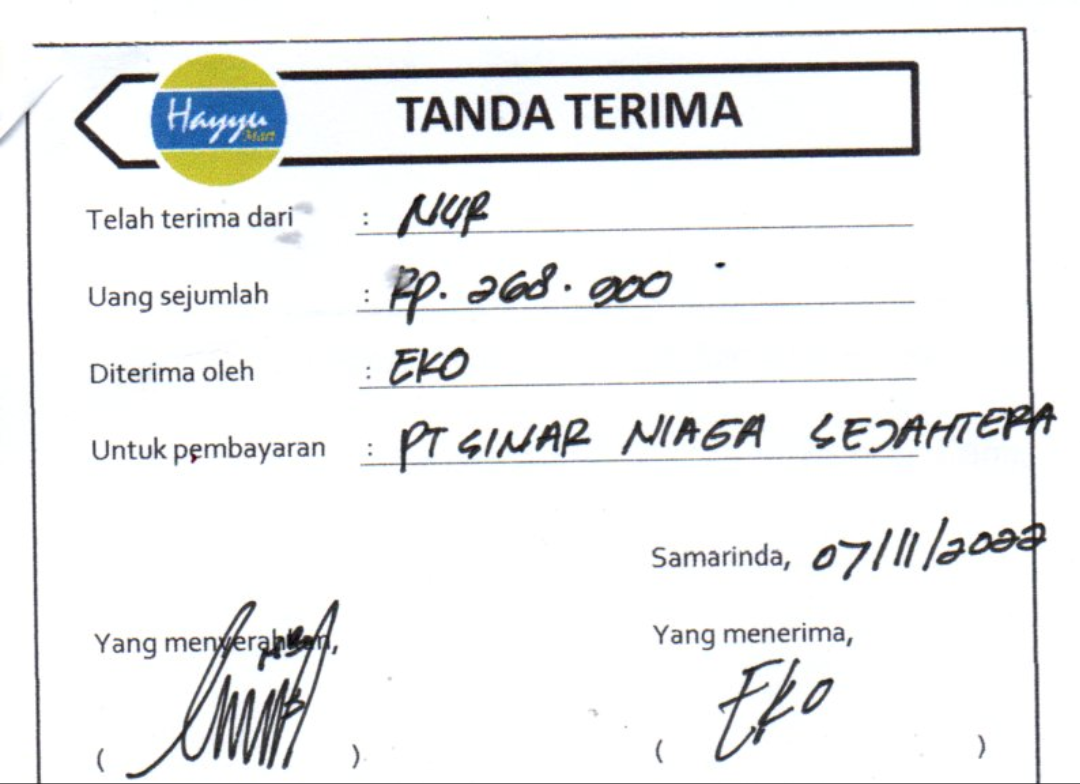 Hayyu
Mart
TANDA TERIMA
Telah terima dari : NUR
Uang sejumlah : RP. 268.900
Diterima oleh : EKO
Untuk pembayaran : PT SINAR NIAGA SEJAHTERA
Samarinda, 07/11/2022
Yang menyerahkan,
Yang menerima,
EKO
( )
( )